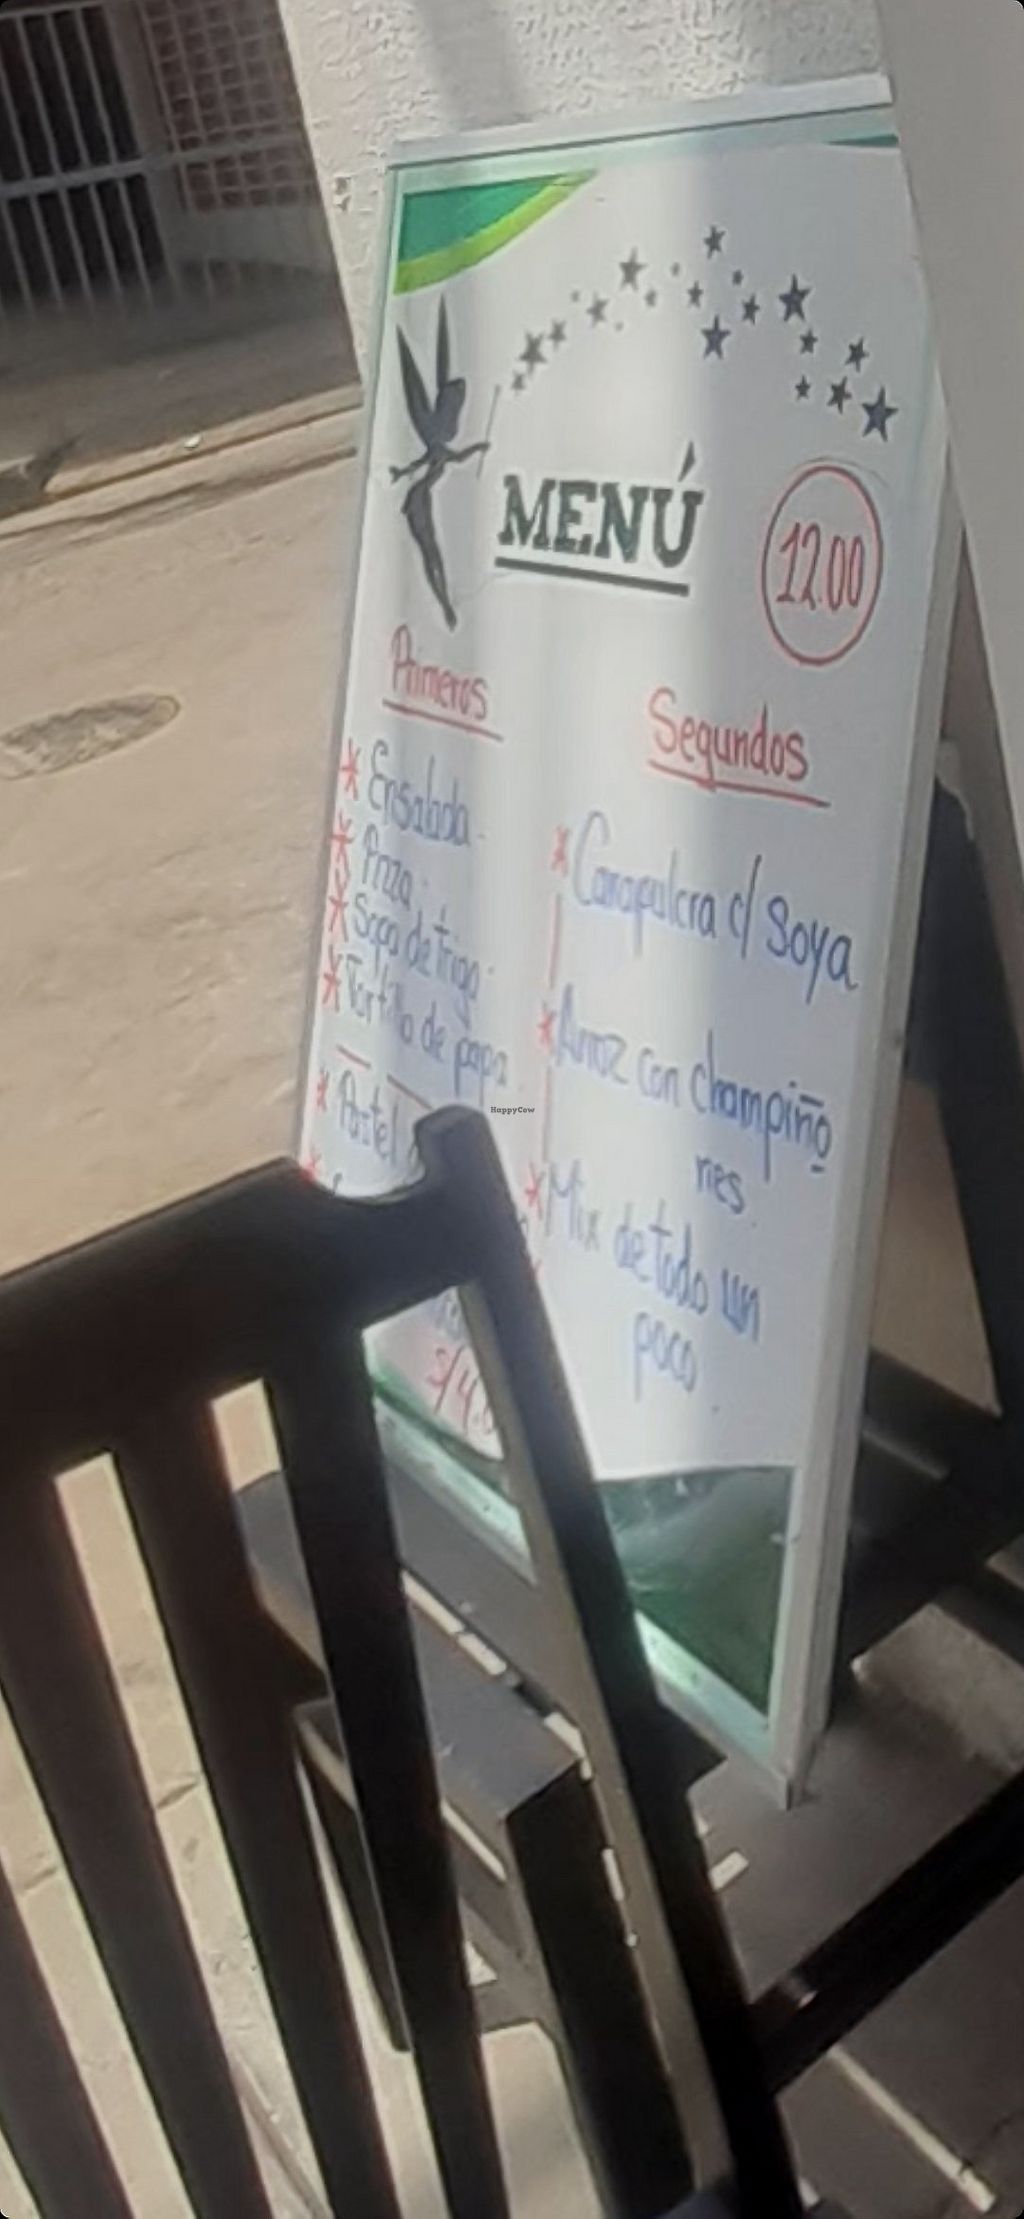 MENÚ
12.00
Primeros
* Ensalada.
* Pizza.
* Sopa de trigo.
* Tortilla de papa
* Pastel
Segundos
* Carapulcra c/ Soya
* Arroz con champiño
nes.
* Mix de todo un
poco.
S/4.
HappyCow